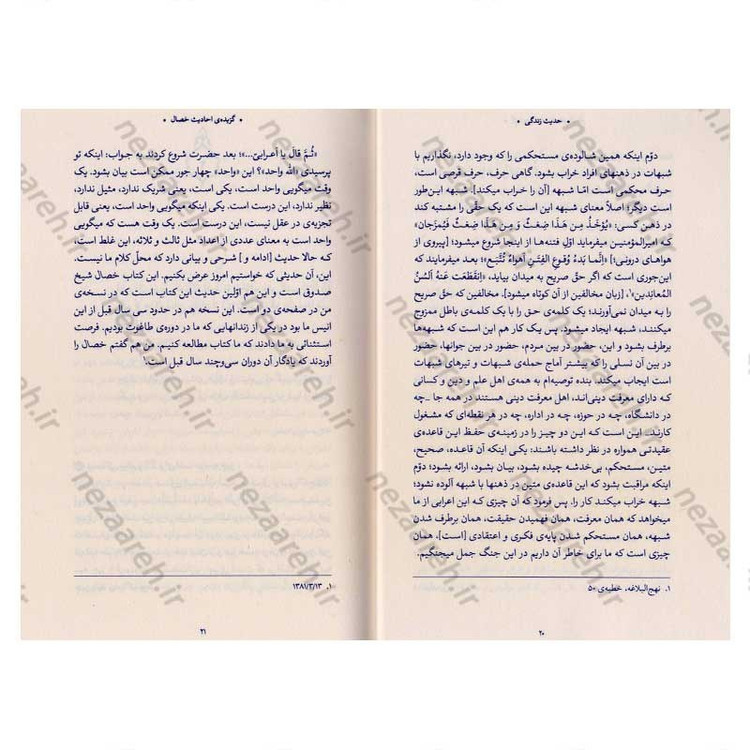 • حدیث زندگی •
دوّم اینکه همین شالوده‌ی مستحکمی را که وجود دارد، نگذاریم با
شبهات در ذهنهای افراد خراب بشود. گاهی حرف، حرف قرصی است،
حرف محکمی است امّا شبهه [آن را خراب میکند] شبهه این‌طور
است دیگر؛ اصلاً معنای شبهه این است که یک حقّی را مشتبه کند
در ذهن کسی؛ «یُؤخَذُ مِن هٰذا ضِغثٌ وَ مِن هٰذا ضِغثٌ فَیُمزَجان»
که امیرالمؤمنین میفرماید اوّل فتنه‌ها از اینجا شروع میشود؛ [پیروی از
هواهای درونی؛] «اِنَّما بَدءُ وُقوعِ الفِتَنِ اَهواءٌ تُتَّبَع»؛ بعد میفرمایند که
این‌جوری است که اگر حقّ صریح به میدان بیاید، «اِنقَطَعَت عَنهُ اَلسُنُ
المُعانِدین»¹، [زبان مخالفین از آن کوتاه میشود]. مخالفین که حق صریح
را به میدان نمی‌آورند؛ یک کلمه‌ی حق را با یک کلمه‌ی باطل ممزوج
میکنند، شبهه ایجاد میشود. پس یک کار هم این است که شبهه‌ها
برطرف بشود و این، حضور در بین مردم، حضور در بین جوانها، حضور
در بین آن نسلی را که بیشتر آماج حمله‌ی شبهات و تیرهای شبهات
است ایجاب میکند. بنده توصیه‌ام به همه‌ی اهل علم و دین و کسانی
که دارای معرفت دینی‌اند، اهل معرفت دینی هستند در همه جا ـ چه
در دانشگاه، چه در حوزه، چه در اداره، چه در هر نقطه‌ای که مشغول
کارند ـ این است که این دو چیز را در زمینه‌ی حفظ این قاعده‌ی
عقیدتی همواره در نظر داشته باشند: یکی اینکه آن قاعده، صحیح،
متین، مستحکم، بی‌خدشه چیده بشود، بیان بشود، ارائه بشود؛ دوّم
اینکه مراقبت بشود که این قاعده‌ی متین در ذهنها با شبهه آلوده نشود؛
شبهه خراب میکند کار را. پس فرمود که آن چیزی که این اعرابی از ما
میخواهد که همان معرفت، همان فهمیدن حقیقت، همان برطرف شدن
شبهه، همان مستحکم شدن پایه‌ی فکری و اعتقادی [است]، همان
چیزی است که ما برای خاطر آن داریم در این جنگ جمل میجنگیم.
۱. نهج‌البلاغه، خطبه‌ی ۵۰
۲۰
• گزیده‌ی احادیث خصال •
«ثُمَّ قالَ یا اَعرابیّ...»؛ بعد حضرت شروع کردند به جواب: اینکه تو
پرسیدی «الله واحد»؟ این «واحد» چهار جور ممکن است بیان بشود. یک
وقت میگویی واحد است، یکی است، یعنی شریک ندارد، مثیل ندارد،
نظیر ندارد، این درست است. یکی است که میگویی واحد است، یعنی قابل
تجزیه‌ی در عقل نیست، این درست است. یک وقت هست که میگویی
واحد است به معنای عددی از اعداد مثل ثالث و ثلاثه، این غلط است،
که حالا حدیث [ادامه و] شرحی و بیانی دارد که محلّ کلام ما نیست.
این، آن حدیثی که خواستیم امروز عرض بکنیم. این کتاب خصال شیخ
صدوق است و این هم اوّلین حدیث این کتاب است که در نسخه‌ی
من در صفحه‌ی دو است. این نسخه هم در حدود سی سال قبل از این
انیس ما بود در یکی از زندانهایی که ما در دوره‌ی طاغوت بودیم. فرصت
استثنائی به ما دادند که ما کتاب مطالعه کنیم. من هم گفتم خصال را
آوردند که یادگار آن دوران سی‌وچند سال قبل است.
۱. ۱۳۸۱/۳/۱۳
۲۱
nezaareh.ir